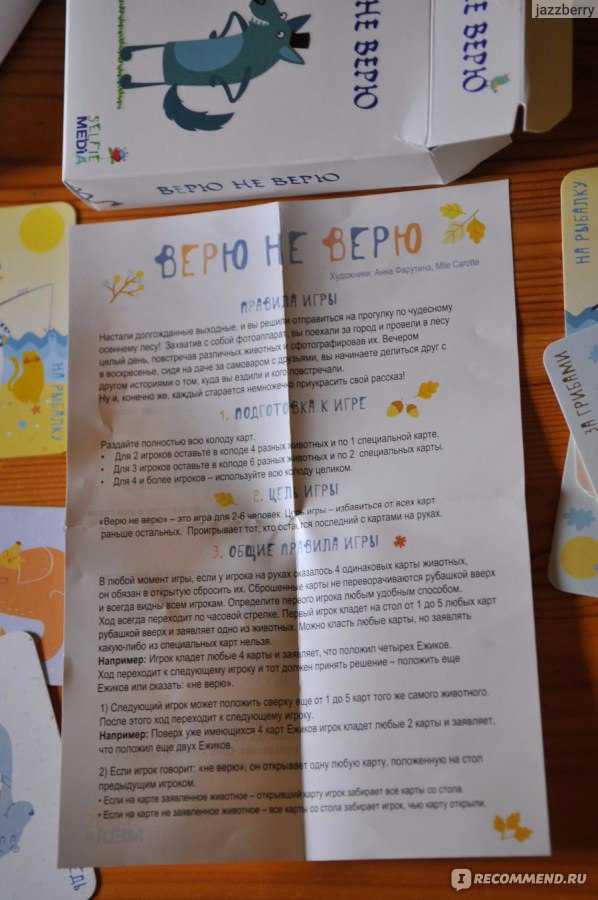 jazzberry
НЕ ВЕРЮ
НЕ ВЕРЮ
SELFIE
MEDIA
ВЕРЮ НЕ ВЕРЮ
ВЕРЮ НЕ ВЕРЮ
Художники: Анна Фарутина, Mlle Carotte
ПРАВИЛА ИГРЫ
Настали долгожданные выходные, и вы решили отправиться на прогулку по чудесному
осеннему лесу! Захватив с собой фотоаппарат, вы поехали за город и провели в лесу
целый день, повстречав различных животных и сфотографировав их. Вечером
в воскресенье, сидя на даче за самоваром с друзьями, вы начинаете делиться друг с
другом историями о том, куда вы ездили и кого повстречали.
Ну и, конечно же, каждый старается немножечко приукрасить свой рассказ!
1. ПОДГОТОВКА К ИГРЕ
Раздайте полностью всю колоду карт.
• Для 2 игроков оставьте в колоде 4 разных животных и по 1 специальной карте.
• Для 3 игроков оставьте в колоде 6 разных животных и по 2 специальных карты.
• Для 4 и более игроков – используйте всю колоду целиком.
2. ЦЕЛЬ ИГРЫ
«Верю не верю» – это игра для 2-6 человек. Цель игры – избавиться от всех карт
раньше остальных. Проигрывает тот, кто остается последний с картами на руках.
3. ОБЩИЕ ПРАВИЛА ИГРЫ
В любой момент игры, если у игрока на руках оказалось 4 одинаковых карты животных,
он обязан в открытую сбросить их. Сброшенные карты не переворачиваются рубашкой вверх
и всегда видны всем игрокам. Определите первого игрока любым удобным способом.
Ход всегда переходит по часовой стрелке. Первый игрок кладет на стол от 1 до 5 любых карт
рубашкой вверх и заявляет одно из животных. Можно класть любые карты, но заявлять
какую-либо из специальных карт нельзя.
Например: Игрок кладет любые 4 карты и заявляет, что положил четырех Ежиков.
Ход переходит к следующему игроку и тот должен принять решение – положить еще
Ежиков или сказать: «не верю».
1) Следующий игрок может положить сверху еще от 1 до 5 карт того же самого животного.
После этого ход переходит к следующему игроку.
Например: Поверх уже имеющихся 4 карт Ежиков игрок кладет любые 2 карты и заявляет,
что положил еще двух Ежиков.
2) Если игрок говорит: «не верю», он открывает одну любую карту, положенную на стол
предыдущим игроком.
• Если на карте заявленное животное – открывший карту игрок забирает все карты со стола.
• Если на карте не заявленное животное – все карты со стола забирает игрок, чью карту открыли.
НА РЫБАЛКУ
НА РЫБАЛКУ
ЗА ГРИБАМИ
IRECOMMEND.RU